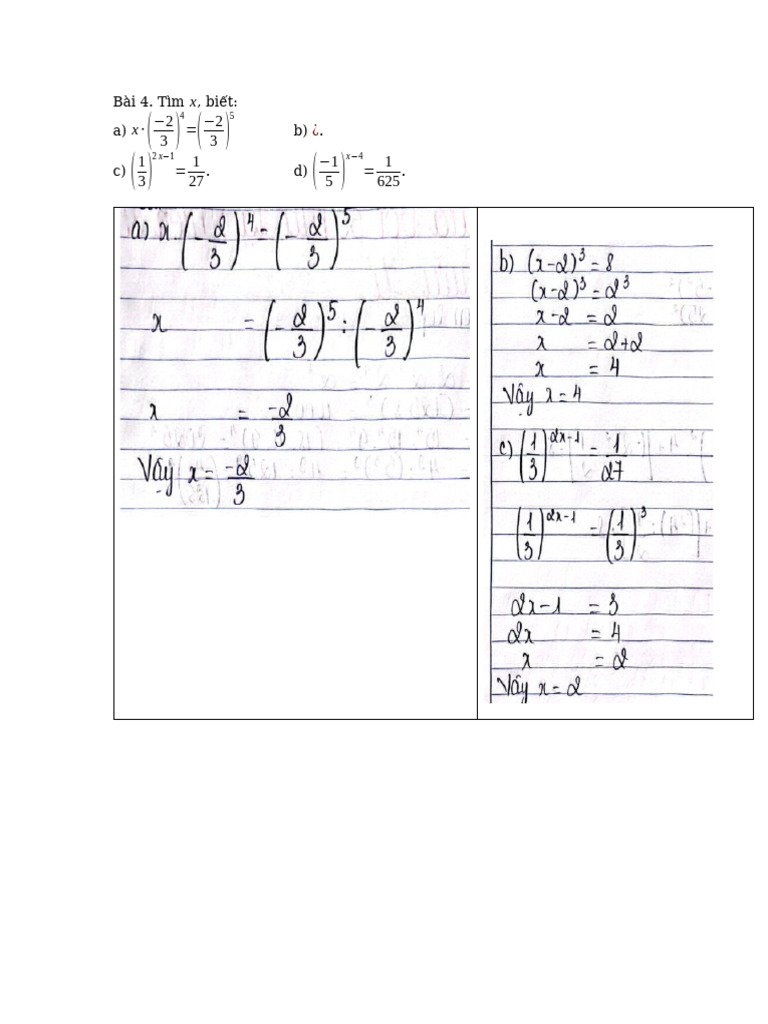 Bài 4. Tìm x, biết:
a) x·(−2/3)^4=(−2/3)^5 b) ¿.
c) (1/3)^(2x−1)=1/27. d) (−1/5)^(x−4)=1/625.
a) x·(-2/3)^4=(-2/3)^5
x = (-2/3)^5:(-2/3)^4
x = -2/3
Vậy x = -2/3
b) (x-2)^3=8
(x-2)^3=2^3
x-2 = 2
x = 2+2
x = 4
Vậy x=4
c) (1/3)^(2x-1) = 1/27
(1/3)^(2x-1) = (1/3)^3
2x-1 = 3
2x = 4
x = 2
Vậy x=2